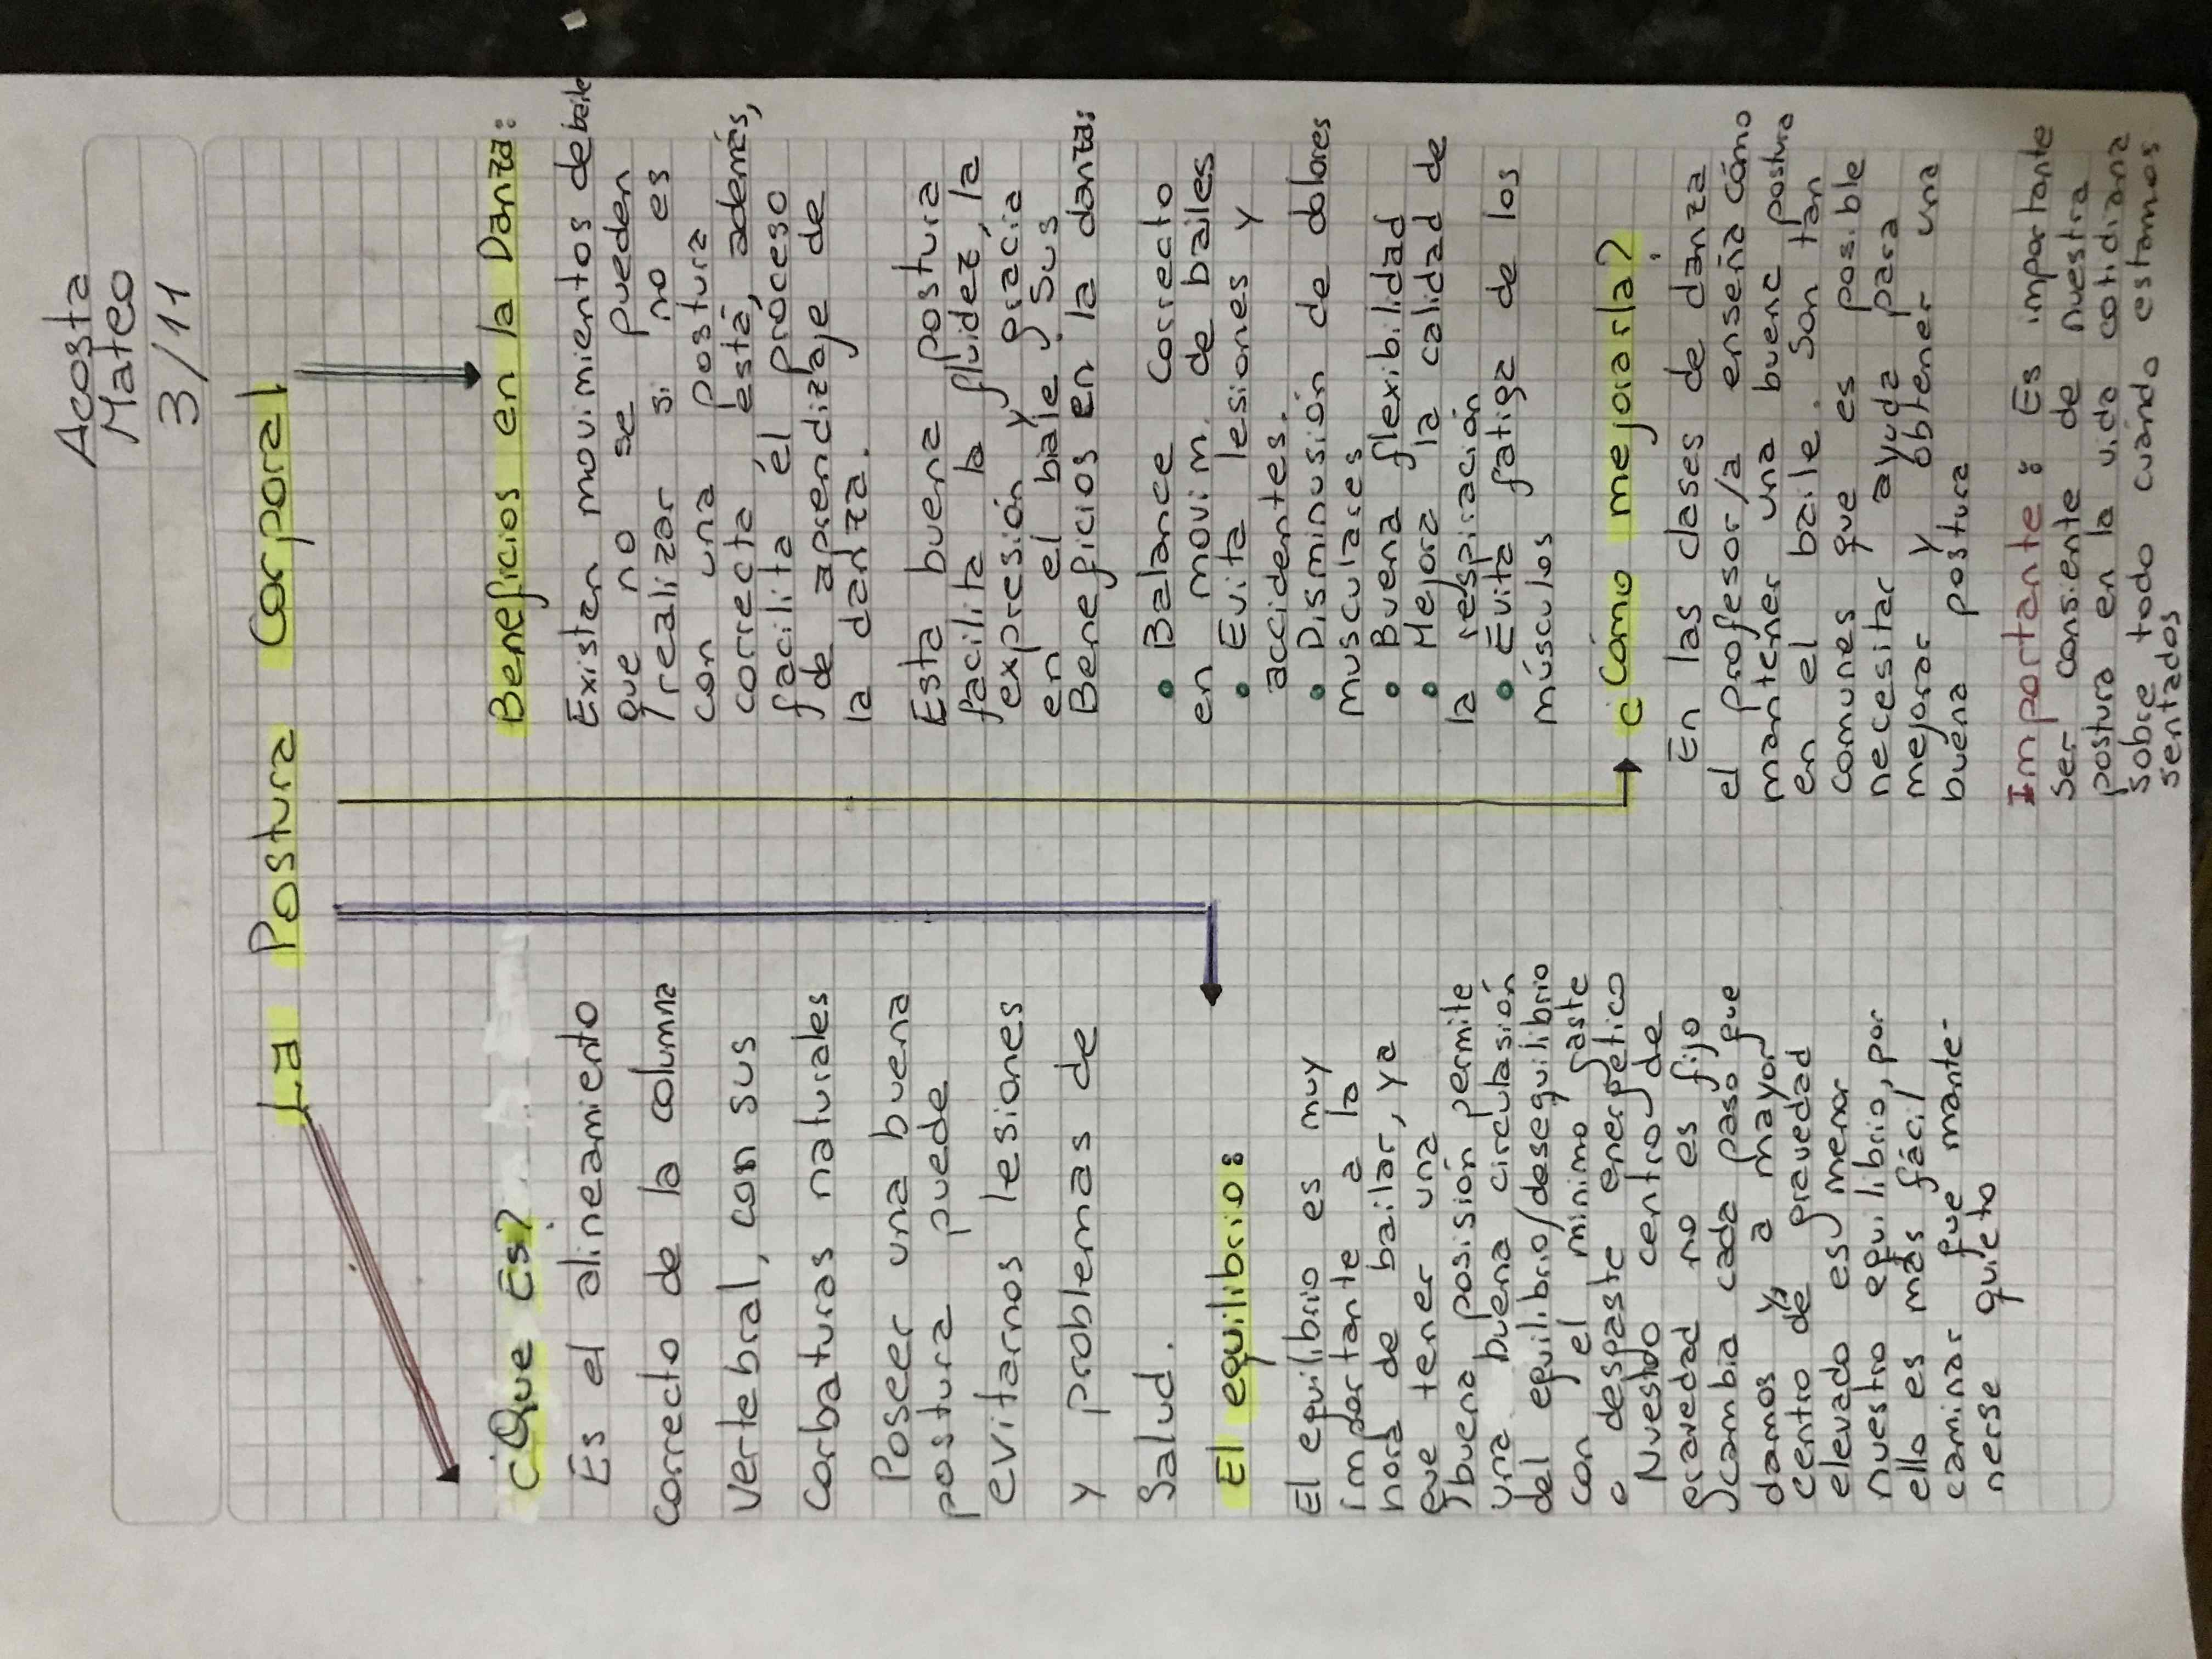 Acosta
Mateo
3/11
La Postura Corporal
¿Que Es?
Es el alineamiento
correcto de la columna
vertebral, con sus
corbaturas naturales
Poseer una buena
postura puede
evitarnos lesiones
y problemas de
Salud.
El equilibrio:
El equilibrio es muy
importante a la
hora de bailar, ya
que tener una
buena posisión permite
una buena circulasión
del equilibrio/desequilibrio
con el minimo gaste
o despaste energético
Nuestdo centro de
gravedad no es fijo
cambia cada paso que
damos y a mayor
centro de gravedad
elevado es menor
nuestro equilibrio, por
ello es más fácil
caminar que mante-
nerse quieto
Beneficios en la Danza:
Existen movimientos de baile
que no se pueden
realizar si no es
con una postura
correcta, está, además,
facilita el proceso
de aprendizaje de
la danza.
Esta buena postura
facilita la fluidez, la
expresión y gracia
en el baile. Sus
Beneficios en la danza:
• Balance Correcto
en movim. de bailes
• Evita lesiones y
accidentes.
• Disminusión de dolores
musculares
• Buena flexibilidad
• Mejora la calidad de
la respiración
• Evita fatiga de los
músculos
¿Cómo mejorarla?
En las clases de danza
el profesor/a enseña cómo
mantener una buena postura
en el baile. Son tan
comunes que es posible
necesitar ayuda para
mejorar y obtener una
buena postura
Importante: Es importante
ser consiente de nuestra
postura en la vida cotidiana
sobre todo cuándo estamos
sentados